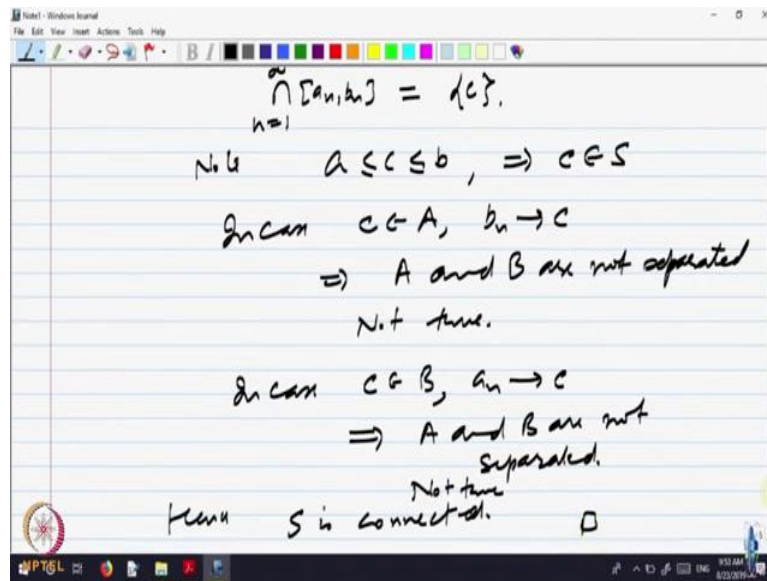 Note1 - Windows Journal
File Edit View Insert Actions Tools Help
∞
∩ [aₙ, bₙ] = {c}.
n=1
Note a ≤ c ≤ b, ⇒ c ∈ S
In case c ∈ A, bₙ → c
⇒ A and B are not separated
Not true.
In case c ∈ B, aₙ → c
⇒ A and B are not
separated.
Not true
Hence S is connected. □
NPTEL
ENG
9:53 AM
8/23/2019